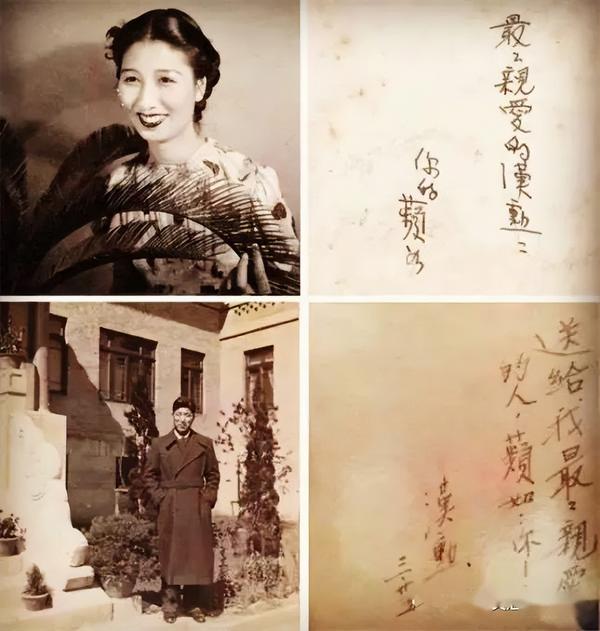 最〻親愛的漢勳：
你的蘋如
送給我最〻親愛
的人，蘋如：你！
漢勳
三、廿五